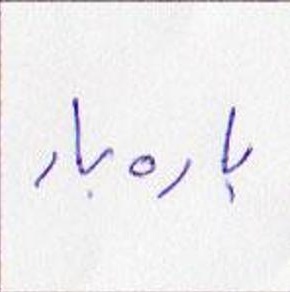 باره بار